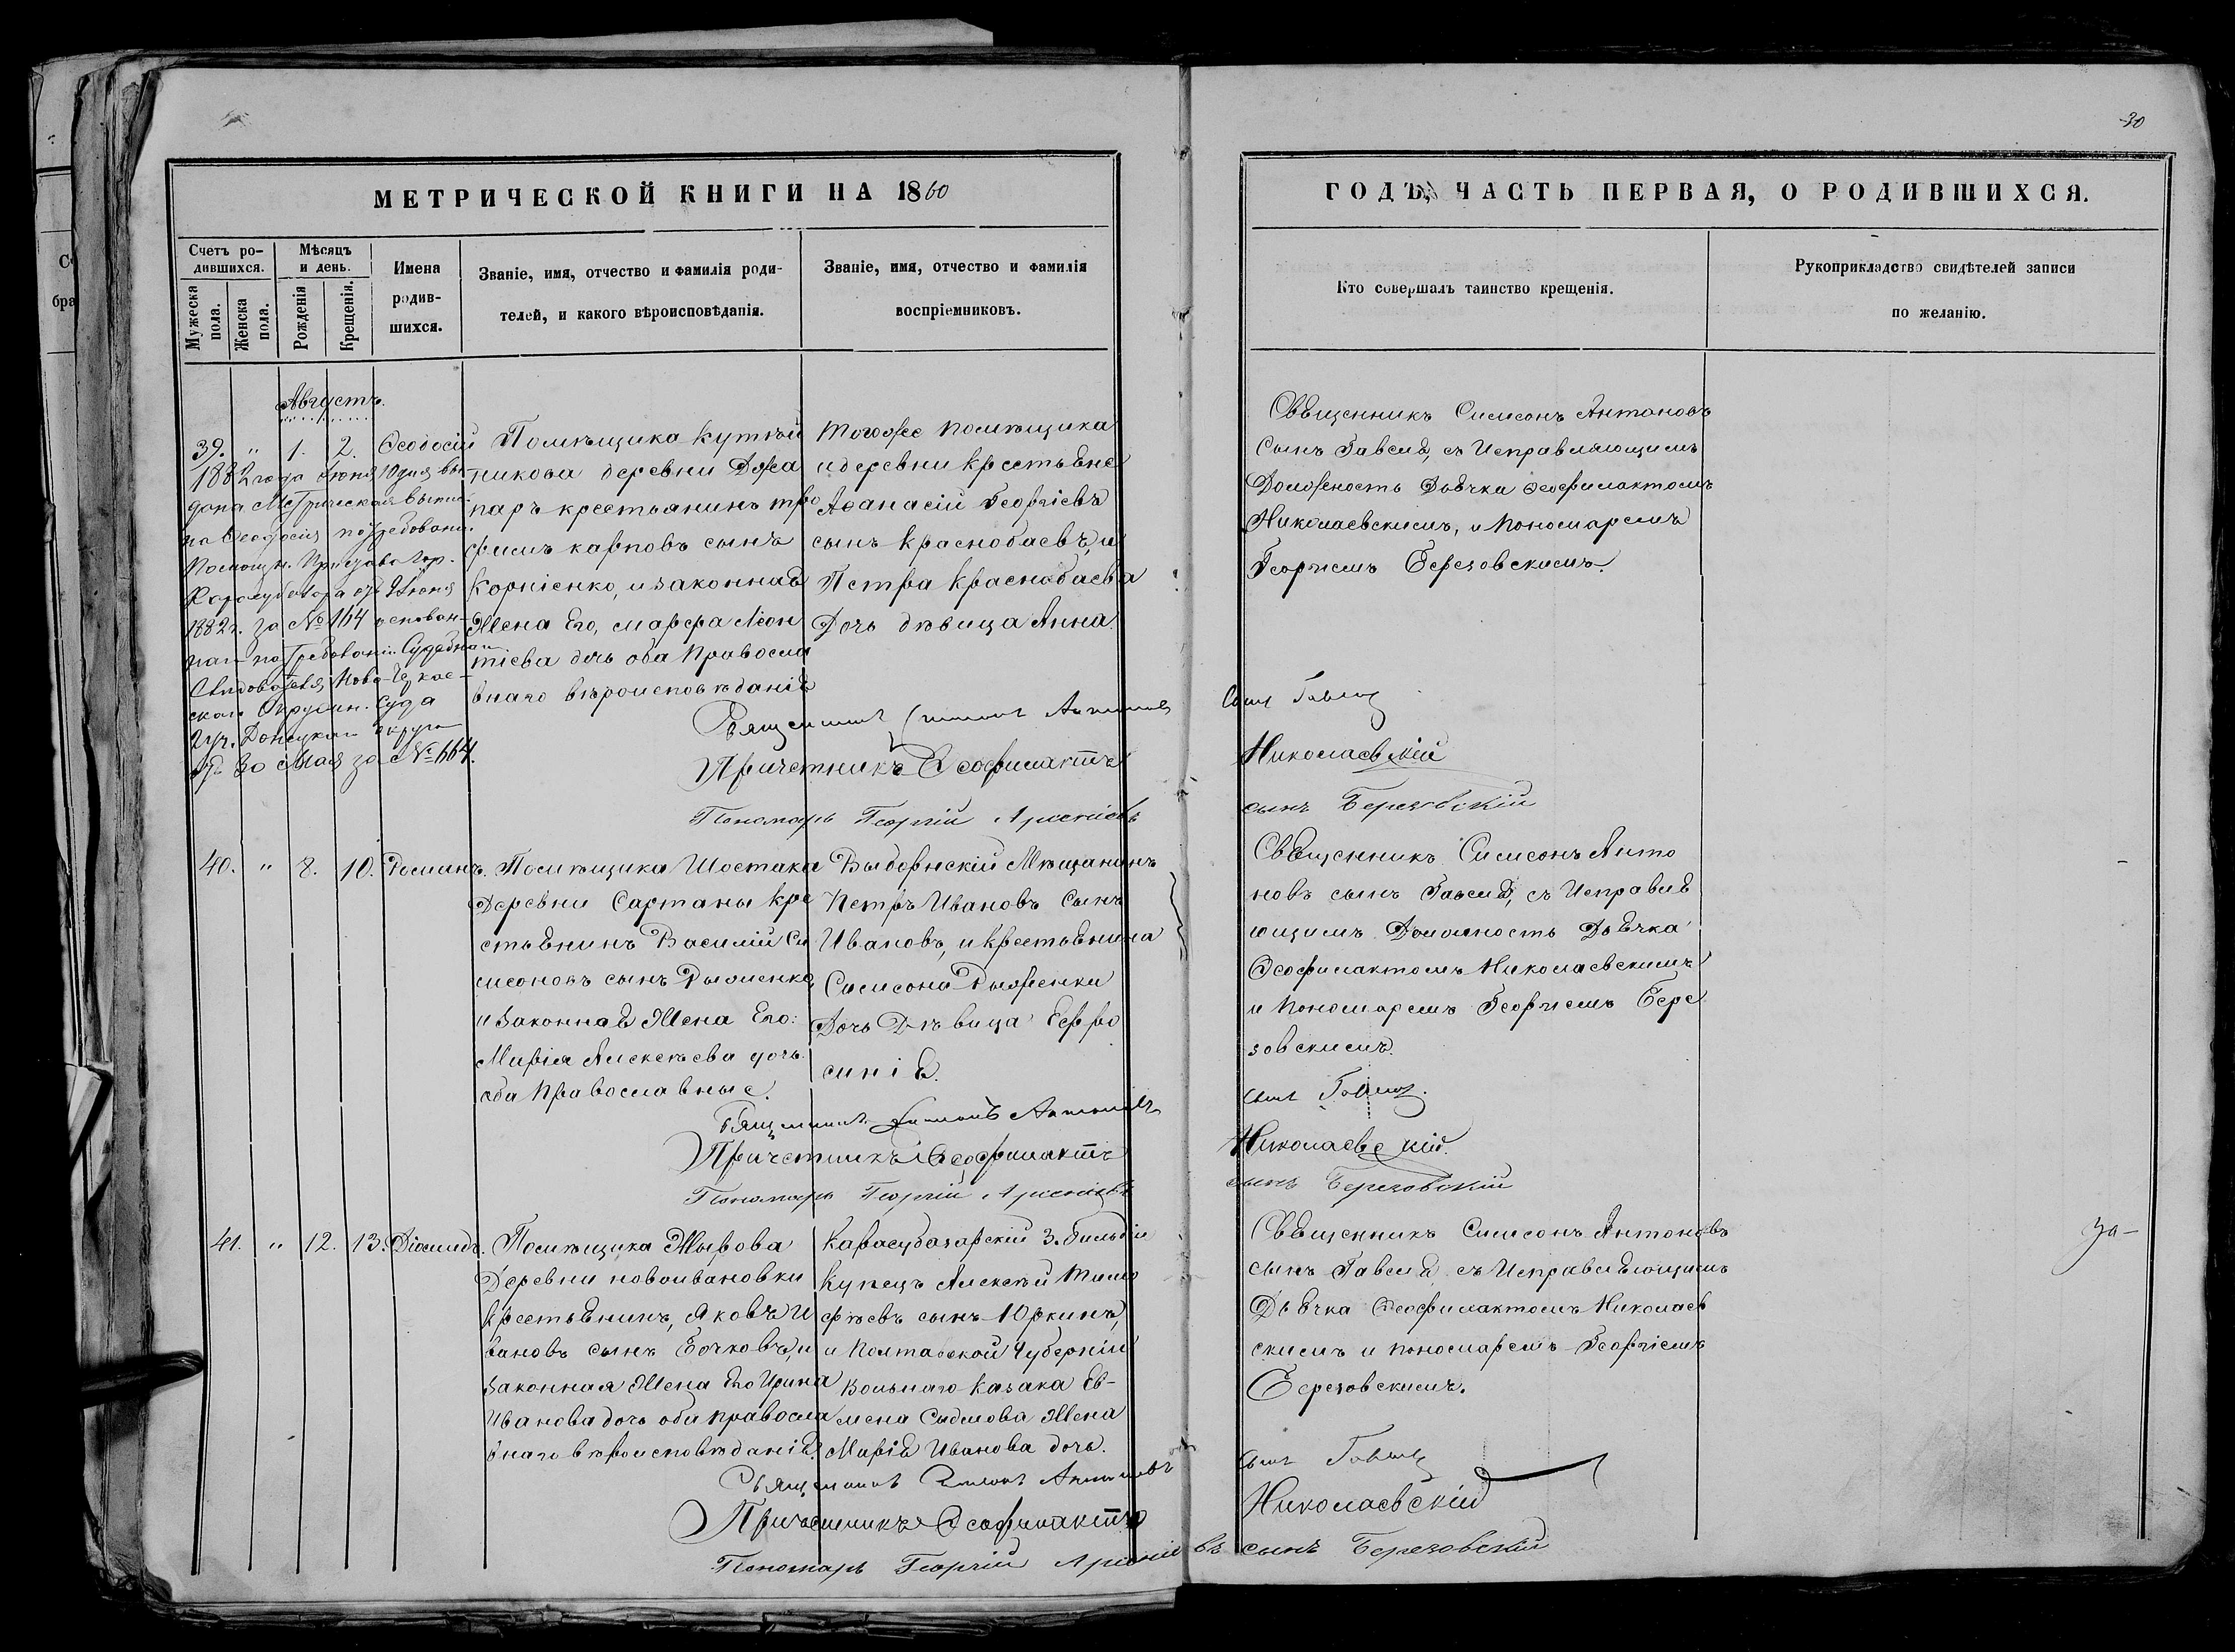 30
МЕТРИЧЕСКОЙ КНИГИ НА 1860
ГОДЪ, ЧАСТЬ ПЕРВАЯ, О РОДИВШИХСЯ.
Счетъ ро-
дившихся.
Мужеска
пола.
Женска
пола.
Мѣсяцъ
и день.
Рожденія
Крещенія.
Имена
родив-
шихся.
Званіе, имя, отчество и фамилія роди-
телей, и какого вѣроисповѣданія.
Званіе, имя, отчество и фамилія
воспріемниковъ.
Кто совершалъ таинство крещенія.
Рукоприкладство свидѣтелей записи
по желанію.
Августъ.
39. " 1. 2. Ѳеодосій
1882 года Іюня 10 дня вы
дана Метрическая выпис.
на Ѳеодосія по требован.
Помощн. Пристава гор.
Карасубазара отъ Іюня
1882 г. за № 164 основан-
наго по требованію Судебнаго
Слѣдователя Ново-Черкас-
скаго Окружн. Суда
2 уч. Донецкаго округа
отъ 30 Мая за № 664.
Помѣщика
никова деревни Джа
паръ крестьянинъ тро
фимъ карповъ сынъ
Корніенко, и законная
Жена Его, марфа Леон
тіева дочь оба Правосла
внаго вѣроисповѣданія
Тогоже помѣщика
и деревни крестьяне
Аѳанасій Георгіевъ
сынъ Краснобаевъ, и
Петра Краснобаева
Дочь дѣвица Анна.
Священникъ Симеонъ Антоновъ
Сынъ Гавеля, съ Исправляющимъ
Должность Дьячка Ѳеофилактомъ
Николаевскимъ, и Пономаремъ
Георгіемъ Березовскимъ.
Священникъ Симеонъ Антоновъ сынъ Гавеля
Причетникъ Ѳеофилактъ Николаевскій
Пономарь Георгій Арсеніевъ сынъ Березовскій
40. " 8. 10. Романъ.
Помѣщика Шостака
Деревни Сартаны кре
стьянинъ Василій Си
меоновъ сынъ Рыженко,
и Законная Жена Его:
Марія Алексѣева дочь.
оба Православные.
Выборнскій Мѣщанинъ
Петръ Ивановъ Сынъ
Ивановъ, и крестьянина
Симеона Рыженки
Дочь Дѣвица Ефро
синія.
Священникъ Симеонъ Анто
новъ сынъ Гавеля, съ Исправля
ющимъ Должность Дьячка
Ѳеофилактомъ Николаевскимъ
и Пономаремъ Георгіемъ Бере
зовскимъ.
Священникъ Симеонъ Антоновъ сынъ Гавеля.
Причетникъ Ѳеофилактъ Николаевскій.
Пономарь Георгій Арсеніевъ сынъ Березовскій
41. " 12. 13. Діомидъ.
Помѣщика Жырова
Деревни новоивановки
Крестьянинъ, Яковъ И
вановъ сынъ Бочковъ, и
Законная Жена Его Ирина
Иванова дочь оба правосла
внаго вѣроисповѣданія.
Карасубазарскій 3. гильдіи
Купецъ Алексѣй Тимо
фѣевъ сынъ Юркинъ,
и Полтавской Губерніи
Вольнаго Казака Ев-
мена Жена
Марія Иванова дочь.
Священникъ Симеонъ Антоновъ
сынъ Гавеля съ Исправляющимъ
Дьячка Ѳеофилактомъ Николаев
скимъ и пономаремъ Георгіемъ
Березовскимъ.
За-
Священникъ Симеонъ Антоновъ сынъ Гавеля
Причетникъ Ѳеофилактъ Николаевскій
Пономарь Георгій Арсеніевъ сынъ Березовскій